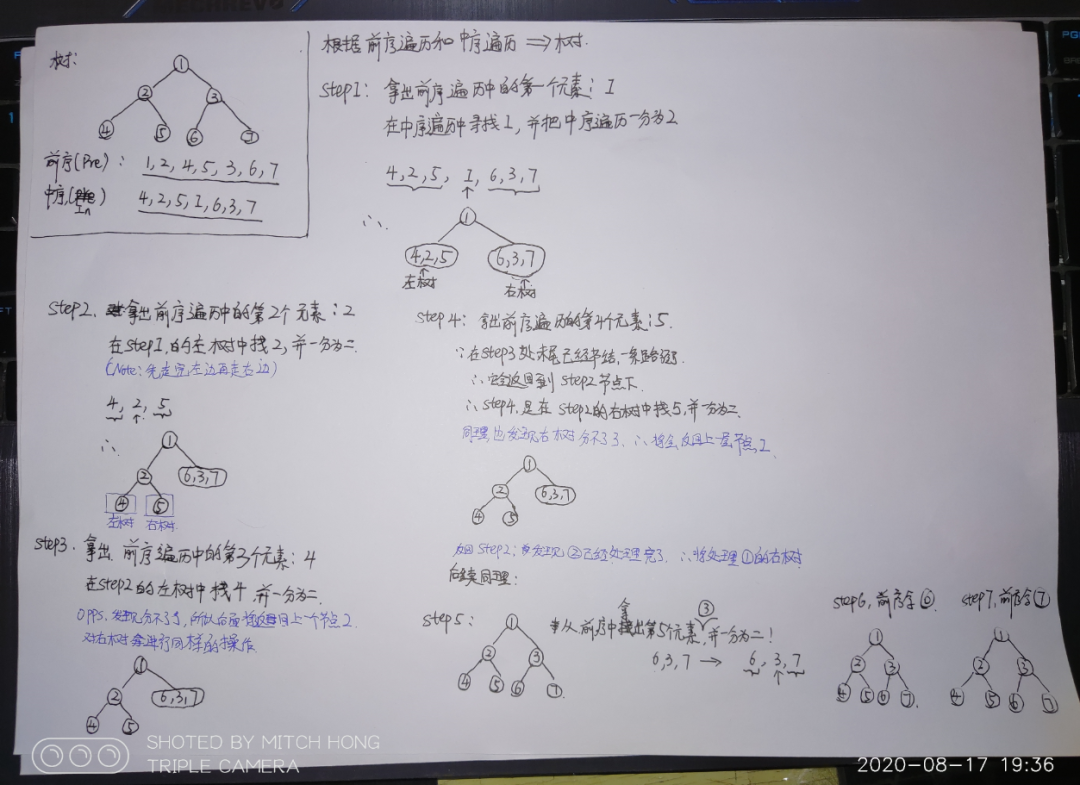 树:
1
2 3
4 5 6 7
前序(Pre): 1,2,4,5,3,6,7
中序(In) 4,2,5,1,6,3,7
根据前序遍历和中序遍历 ⟹ 树.
Step1: 拿出前序遍历中的第一个元素: 1
在中序遍历中寻找1, 并把中序遍历一分为2
4,2,5, 1, 6,3,7
∴
1
4,2,5 6,3,7
左树 右树
Step2. 拿出前序遍历中的第2个元素: 2
在Step1.的左树中找2, 并一分为二.
(Note: 先走完左边再走右边)
4, 2, 5
∴
1
2 6,3,7
4 5
左树 右树
Step3. 拿出 前序遍历中的第3个元素: 4
在Step2的左树中找4, 并一分为二.
OPPS, 发现分不了了, 所以后面将返回上一个节点2
对右树进行同样的操作
1
2 6,3,7
4 5
Step4: 拿出前序遍历的第4个元素: 5.
∵在Step3处末尾已经
∴ 返回到 Step2节点下.
∴ Step4. 是在 Step2的右树中找5, 并一分为二.
同理, 也发现右树分不了了. ∴将会返回上一层节点2
1
2 6,3,7
4 5
返回Step2: 发现②已经处理完了 ∴将处理①的右树
后续同理:
Step5: 从前序中拿出第5个元素③, 并一分为二!
6,3,7 → 6, 3, 7
1
2 3
4 5 6 7
Step6, 前序拿⑥
1
2 3
4 5 6 7
Step7, 前序拿⑦
1
2 3
4 5 6 7
SHOTED BY MITCH HONG
TRIPLE CAMERA
2020-08-17 19:36